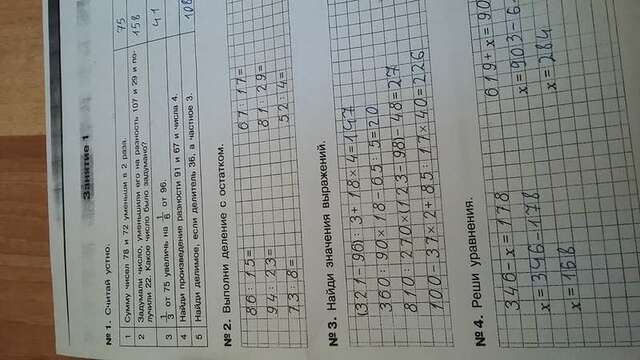 Занятие 1
№ 1. Считай устно.
1 Сумму чисел 78 и 72 уменьши в 2 раза. 75
2 Задумали число, уменьшили его на разность 107 и 29 и по-
лучили 22. Какое число было задумано? 158
3 1/3 от 75 увеличь на 1/6 от 96. 41
4 Найди произведение разности 91 и 67 и числа 4.
5 Найди делимое, если делитель 36, а частное 3. 108
№ 2. Выполни деление с остатком.
86:15= 67:17=
94:23= 81:29=
73:8= 52:4=
№ 3. Найди значения выражений.
(321-96):3+18×4=147
360:90×18-65:5=20
810-270×(123-98)-48=27
100-37×2+85:17×40=226
№ 4. Реши уравнения.
346-x=178 619+x=90
x=346-178 x=903-6
x=168 x=284